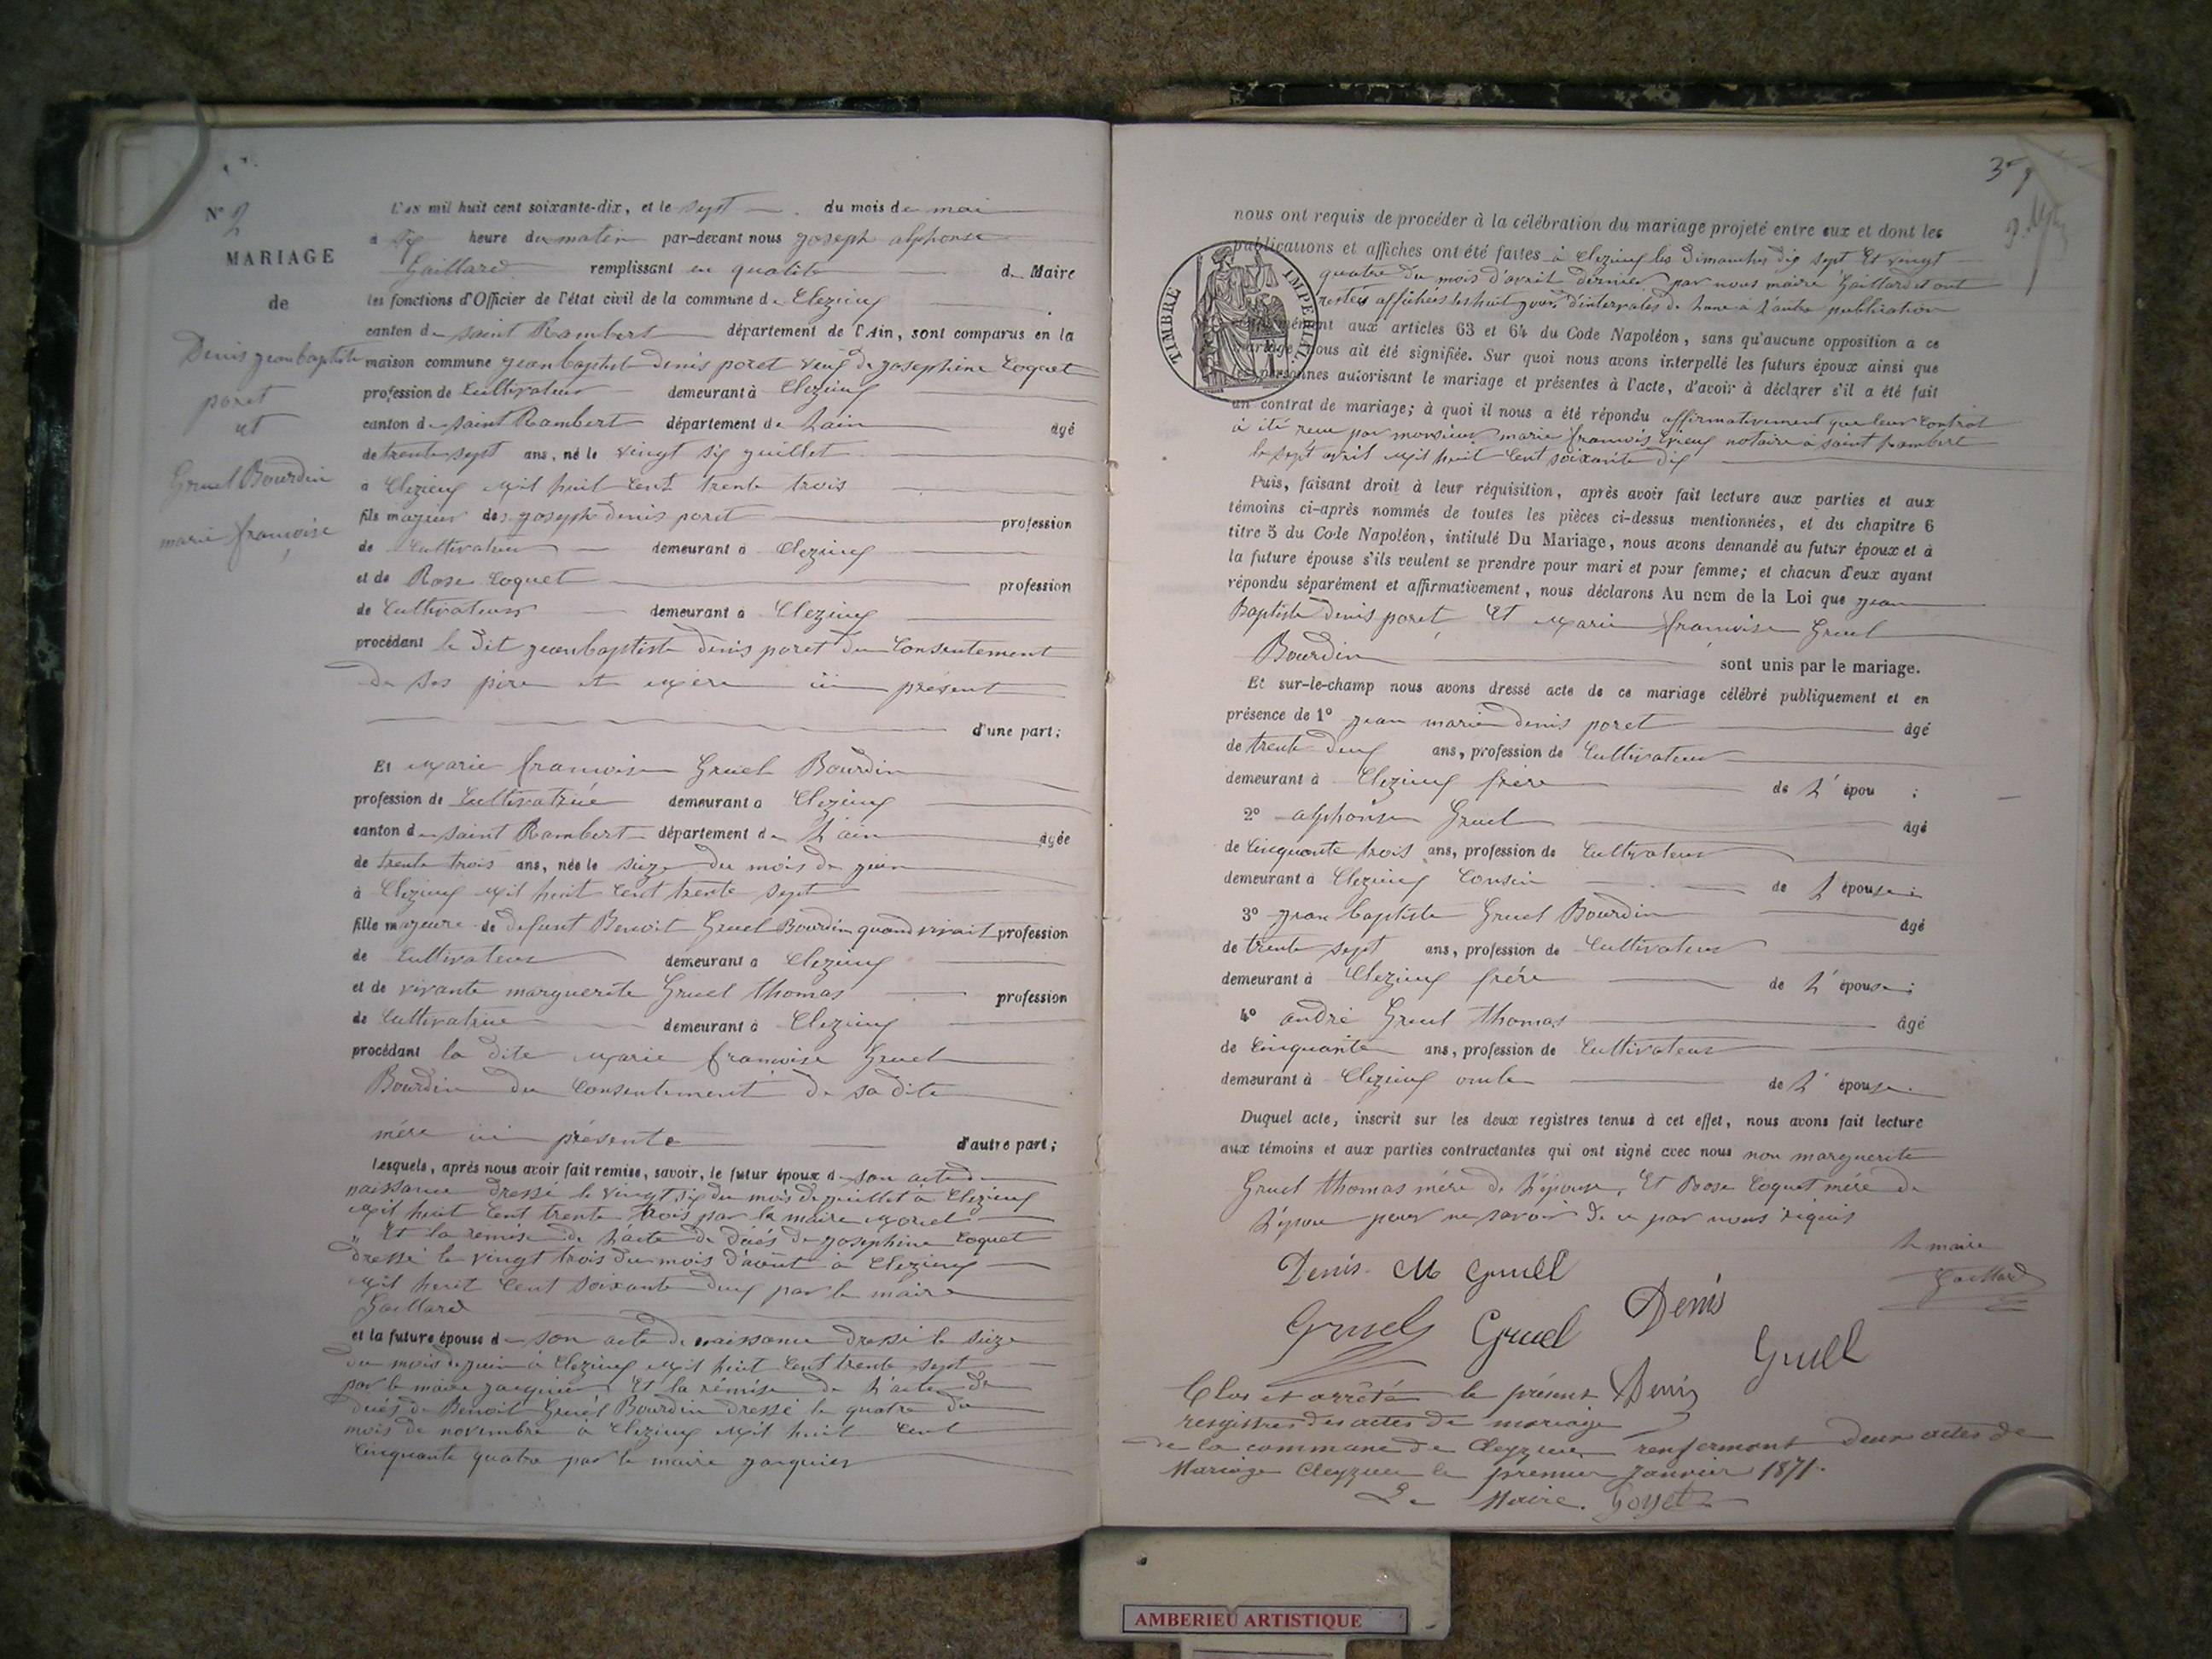 N° 2
MARIAGE
de
Denis jean baptiste
poret
et
Gruel Bourdin
marie francoise
L'an mil huit cent soixante-dix, et le sept du mois de mai
a six heure du matin par-devant nous joseph alphonse
Gaillard remplissant en qualité de Maire
les fonctions d'Officier de l'état civil de la commune de Clezieux
canton de saint Rambert département de l'Ain, sont comparus en la
maison commune jean baptiste denis poret veuf de josephine Coquet
profession de Cultivateur demeurant à Clezieux
canton de saint Rambert département de Lain âgé
de trente sept ans, né le vingt six juillet
a Clezieux mil huit Cent trente trois
fils majeur des joseph denis poret profession
de Cultivateur demeurant à Clezieux
et de Rose Coquet profession
de Cultivateurs demeurant à Clezieux
procédant le dit jean baptiste denis poret du Consentement
de ses père et mère ici présent
d'une part;
Et Marie francoise Gruel Bourdin
profession de Cultivatrice demeurant a Clezieux
canton de saint Rambert département de L'ain âgée
de trente trois ans, née le sieze du mois de juin
à Clezieux mil huit Cent trente sept
fille majeure de defunt Benoit Gruel Bourdin quand vivait profession
de Cultivateur demeurant a Clezieux
et de vivante marguerite Gruel thomas profession
de Cultivatrice demeurant à Clezieux
procédant la dite Marie francoise Gruel
Bourdin du Consentement de sa dite
mère ici présente d'autre part;
Lesquels, après nous avoir fait remise, savoir, le futur époux de son acte de
naissance dressé le vingt six du mois de juillet à Clezieux
mil huit Cent trente trois par le maire Morel
Et la remise de L'acte de décés de josephine Coquet
dressé le vingt trois du mois d'aout à Clezieux
mil huit Cent soixante deux par le maire
Gaillard
et la future épouse de son acte de naissance dressé le sieze
du mois de juin à Clezieux mil huit Cent trente sept
par le maire jarquier Et la rémise de L'acte de
décés de Benoit Gruel Bourdin dressé le quatre du
mois de novembre à Clezieux mil huit Cent
Cinquante quatre par le maire jarquier
3
nous ont requis de procéder à la célébration du mariage projeté entre eux et dont les
publications et affiches ont été faites à Clezieux les dimanches dix sept Et vingt
quatre du mois d'avril dernier par nous maire Gaillard et ont
restées affichées les huit jours d'intervales de Lune à L'autre publication
conformément aux articles 63 et 64 du Code Napoléon, sans qu'aucune opposition a ce
mariage nous ait été signifiée. Sur quoi nous avons interpellé les futurs époux ainsi que
les personnes autorisant le mariage et présentes à l'acte, d'avoir à déclarer s'il a été fait
un contrat de mariage; à quoi il nous a été répondu affirmativement que leur Contrat
à été recu par monsieur marie francois notaire à saint Rambert
le sept avril mil huit Cent soixante dix
TIMBRE IMPERIAL
Puis, faisant droit à leur réquisition, après avoir fait lecture aux parties et aux
témoins ci-après nommés de toutes les pièces ci-dessus mentionnées, et du chapitre 6
titre 5 du Code Napoléon, intitulé Du Mariage, nous avons demandé au futur époux et à
la future épouse s'ils veulent se prendre pour mari et pour femme; et chacun d'eux ayant
répondu séparément et affirmativement, nous déclarons Au nom de la Loi que jean
Baptiste denis poret Et Marie francoise Gruel
Bourdin sont unis par le mariage.
Et sur-le-champ nous avons dressé acte de ce mariage célébré publiquement et en
présence de 1° jean marie denis poret âgé
de trente deux ans, profession de Cultivateur
demeurant à Clezieux frère de L' épou ;
2° alphonse Gruel âgé
de Cinquante trois ans, profession de Cultivateur
demeurant à Clezieux Cousin de L' épouse;
3° jean baptiste Gruel Bourdin âgé
de trente sept ans, profession de Cultivateur
demeurant à Clezieux frére de L' épouse;
4° andré Gruel thomas âgé
de Cinquante ans, profession de Cultivateur
demeurant à Clezieux oncle de L' épouse.
Duquel acte, inscrit sur les deux registres tenus à cet effet, nous avons fait lecture
aux témoins et aux parties contractantes qui ont signé avec nous non marguerite
Gruel thomas mére de L'épouse, Et Rose Coquet mére de
L'épou pour ne savoir de ce par nous requis
Le maire
Denis M Gruel Gaillard
Gruel Gruel Denis
Gruel
Clos et arrêté le présent Denis
resgistres des actes de mariage
de la commune de Cleyzieu renfermant deux actes de
Mariage Cleyzieu le premier janvier 1871.
Le Maire. Goyet
AMBERIEU ARTISTIQUE